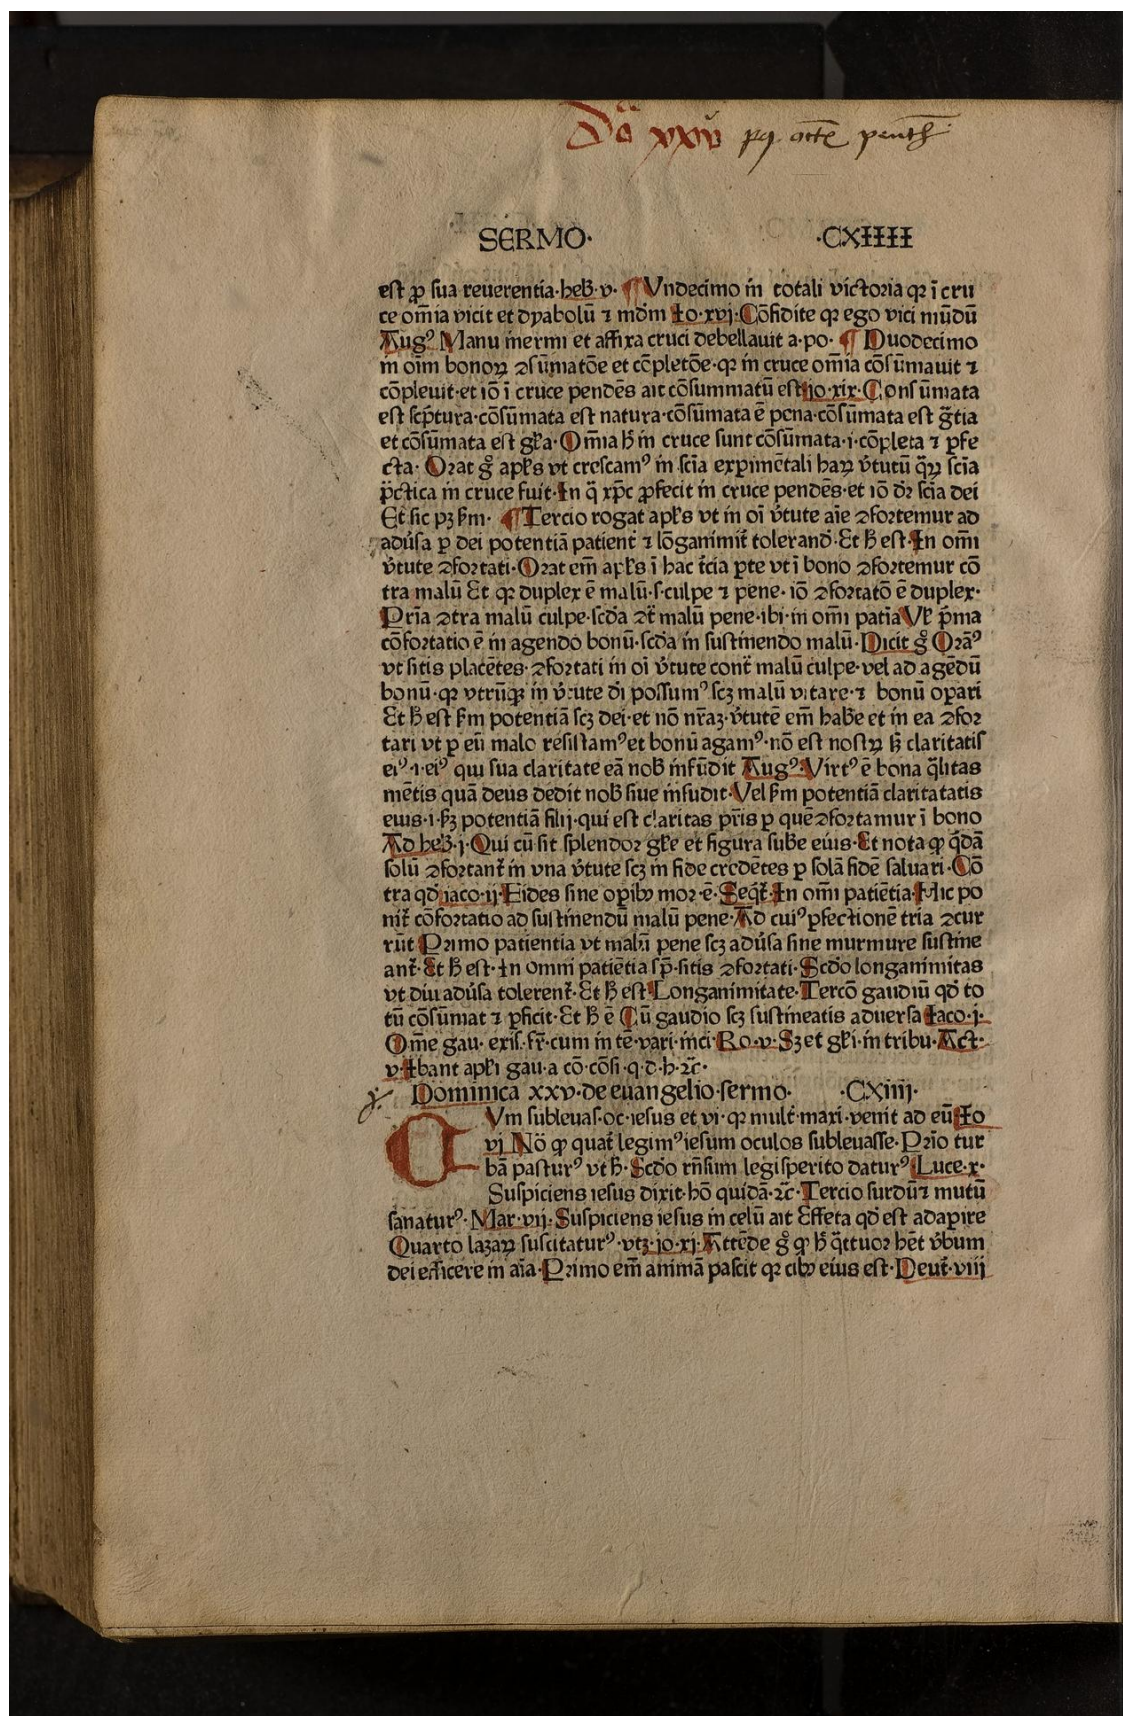 Dō xxv pꝯ octā penth
SERMO· ·CXIIII
est ꝓ sua reuerentia·heb̄·v· ¶Vndecimo in totali victoria qꝛ ī cru
ce om̄ia vicit et dyabolū ⁊ mdm̄ Io·xvj·Cōfidite qꝛ ego vici mūdū
Augꝰ Manu inermi et affixa cruci debellauit a·po· ¶ Duodecimo
in oīm bonoꝝ ꝯsūmatōe et cōpletōe·qꝛ in cruce om̄ia cōsūmauit ⁊
cōpleuit·et iō ī cruce pendēs ait cōsummatū est io·xix·Consūmata
est scp̄tura·cōsūmata est natura·cōsūmata ē pena·cōsūmata est gr̄tia
et cōsūmata est gl̄ia·Om̄ia h̄ in cruce sunt cōsūmata·i·cōpleta ⁊ ꝑfe
cta· Orat gͦ apl̄s vt crescamꝰ in sc̄ia experimētali haꝝ v̄tutū q̄ꝝ sc̄ia
p̄ctica in cruce fuit·In q̄ xp̄c ꝓfecit in cruce pendēs·et iō dꝛ sc̄ia dei
Et sic pꝫ ẜm· ¶Tercio rogat apl̄s vt in oī v̄tute aīe ꝯfortemur ad
adūsa ꝑ dei potentiā patient̄ ⁊ lōganimit̄ tolerand̄·Et h̄ est·In om̄i
v̄tute ꝯfortati·Orat em̄ apl̄s ī hac t̄cia ꝑte vt ī bono ꝯfortemur cō
tra malū Et qꝛ duplex ē malū·s·culpe ⁊ pene· iō ꝯfortatō ē duplex·
Pr̄ia ꝯtra malū culpe·scd̄a ꝯt̄ malū pene·ibi·in om̄i patīa Vl̄ p̄ma
cōfortatio ē in agendo bonū·scd̄a in sustinendo malū·Dicit gͦ Orāꝰ
vt sitis placētes·ꝯfortati in oī v̄tute cont̄ malū culpe·vel ad agēdū
bonū·qꝛ vtrūqꝫ in v̄tute dī possumꝰ scꝫ malū vitare·⁊ bonū oꝑari
Et h̄ est ẜm potentiā scꝫ dei·et nō nr̄aꝫ·v̄tutē em̄ habe et in ea ꝯfor
tari vt ꝑ eū malo resistamꝰ et bonū agamꝰ·nō est nostꝝ sꝫ claritatis
eiꝰ·i·eiꝰ qui sua claritate eā nob̄ infūdit Augꝰ·Virtꝰ ē bona q̄litas
mētis quā deus dedit nob̄ siue infudit·Vel ẜm potentiā claritatatis
eius·i·ẜꝫ potentiā filij·qui est claritas pr̄is ꝑ quē ꝯfortamur ī bono
Ad heb̄·j·Qui cū sit splendor gl̄ie et figura sub̄e eius·Et nota ꝙ q̄dā
solū ꝯfortant̄ in vna v̄tute scꝫ in fide credētes ꝑ solā fidē saluari·Cō
tra qd̄ iaco·ij·Fides sine oꝑibꝰ mor·ē·Seqt̄·In om̄i patiētia·Hic po
nit̄ cōfortatio ad sustinendū malū pene·Ad cuiꝰ ꝑfectionē tria ꝯcur
rūt Primo patientia vt malū pene scꝫ adūsa sine murmure sustine
ant̄·Et h̄ est·In omni patiētia sp̄·sitis ꝯfortati·Scdo longanimitas
vt diu adūsa tolerent̄·Et h̄ est Longanimitate·Tercō gaudiū qd̄ to
tū cōsūmat ⁊ ꝑficit·Et h̄ ē Cū gaudio scꝫ sustineatis aduersa Iaco·j·
Om̄e gau· exis·fr̄·cum in tē·vari·inci·Ro·v·Sꝫ et gl̄i·in tribu·Act·
v·Ibant apl̄i gau·a cō·cōsi·q·d·h·⁊c̄·
Dominica xxv·de euangelio·sermo· ·CXiiij·
CVm subleuas·oc·iesus et vi·qꝛ mult̄·maxi·venit ad eū Io
vj Nō ꝙ quat̄ legimꝰ iesum oculos subleuasse·Prīo tur
bā pasturꝰ vt h̄·Scdo rn̄sum legisperito daturꝰ Luce·x·
Suspiciens iesus dixit·hō quidā·⁊c̄·Tercio surdū ⁊ mutū
sanaturꝰ·Mar·vij·Suspiciens iesus in celū ait Effeta qd̄ est adapire
Quarto lazaꝝ suscitaturꝰ·vtꝫ·io·xj·Attēde gͦ ꝙ h̄ q̄ttuor hēt v̄bum
dei efficere in aīa·Primo em̄ animā pascit qꝛ cibꝰ eius est·Deut̄·viij